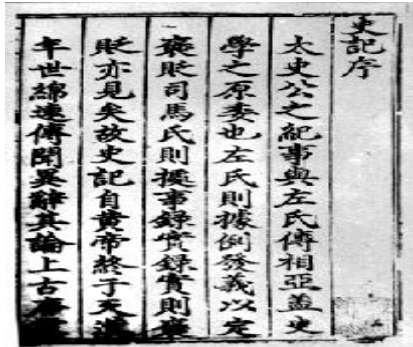 史記序
太史公之紀事與左氏傳相亞蓋史
學之原委也左氏則據例發義以定
褒貶司馬氏則據事錄實錄實則褒
貶亦見矣故史記自黃帝終于天漢
年世綿遠傳聞異辭其論上古唐